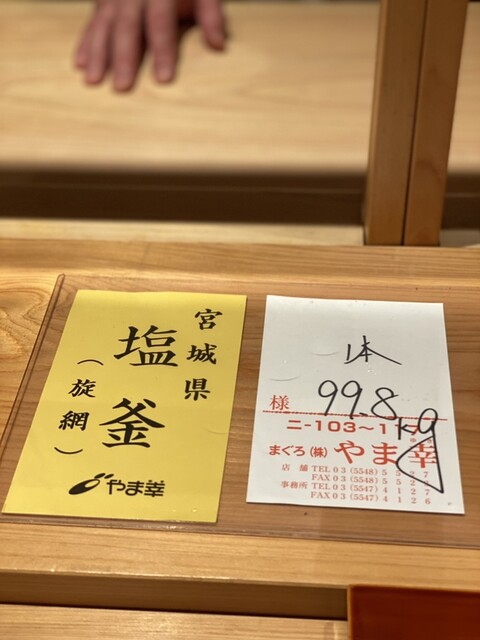 宮城県
塩釜
(旋網)
やま幸
1本
99.8kg
様
ニ-103~1
まぐろ(株)やま幸
店舗 TEL03(5548)5527
FAX03(5548)5527
事務所 TEL03(5547)4127
FAX03(5547)4126